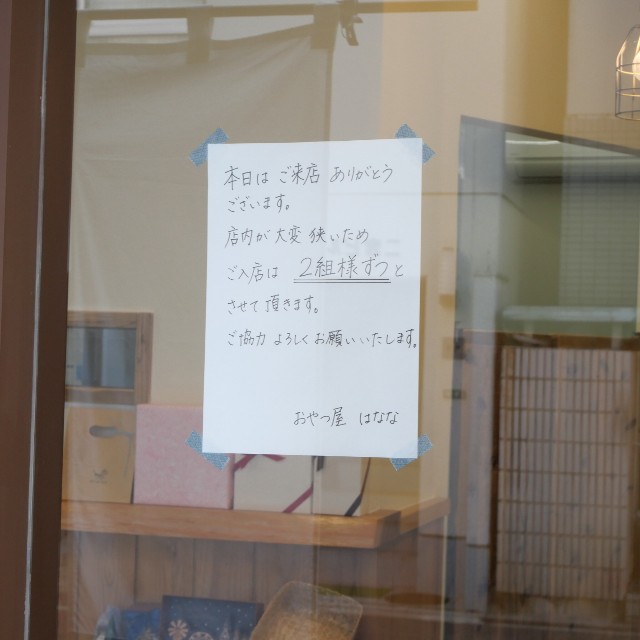 本日は ご来店 ありがとう
ございます。
店内が 大変 狭いため
ご入店は 2組様ずつと
させて頂きます。
ご協力 よろしくお願いいたします。
おやつ屋 はなな